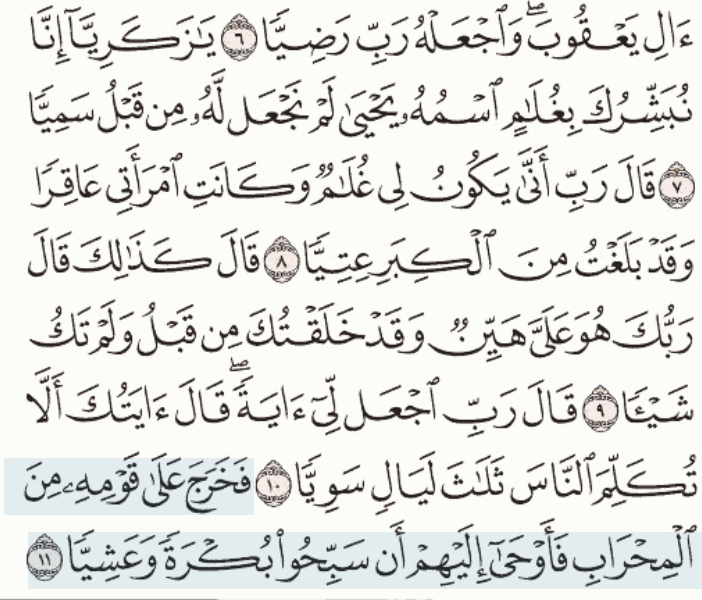 ءَالِ يَعْقُوبَۖ وَٱجْعَلْهُ رَبِّ رَضِيًّا ٦ يَٰزَكَرِيَّآ إِنَّا
نُبَشِّرُكَ بِغُلَٰمٍ ٱسْمُهُۥ يَحْيَىٰ لَمْ نَجْعَل لَّهُۥ مِن قَبْلُ سَمِيًّا
٧ قَالَ رَبِّ أَنَّىٰ يَكُونُ لِى غُلَٰمٌ وَكَانَتِ ٱمْرَأَتِى عَاقِرًا
وَقَدْ بَلَغْتُ مِنَ ٱلْكِبَرِ عِتِيًّا ٨ قَالَ كَذَٰلِكَ قَالَ
رَبُّكَ هُوَ عَلَىَّ هَيِّنٌ وَقَدْ خَلَقْتُكَ مِن قَبْلُ وَلَمْ تَكُ
شَيْـًٔا ٩ قَالَ رَبِّ ٱجْعَل لِّىٓ ءَايَةًۖ قَالَ ءَايَتُكَ أَلَّا
تُكَلِّمَ ٱلنَّاسَ ثَلَٰثَ لَيَالٍ سَوِيًّا ١٠ فَخَرَجَ عَلَىٰ قَوْمِهِۦ مِنَ
ٱلْمِحْرَابِ فَأَوْحَىٰٓ إِلَيْهِمْ أَن سَبِّحُوا۟ بُكْرَةً وَعَشِيًّا ١١